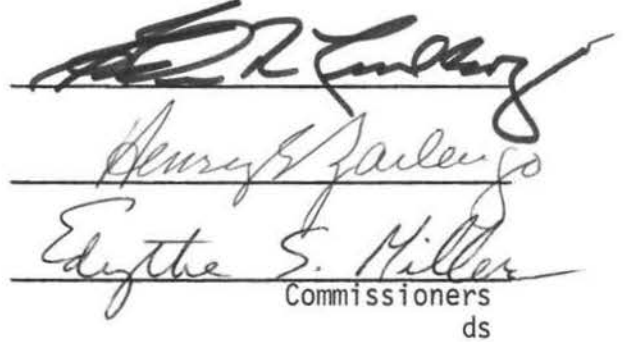 R Lundborg
Henry E Zarlengo
Edythe S. Miller
Commissioners
ds